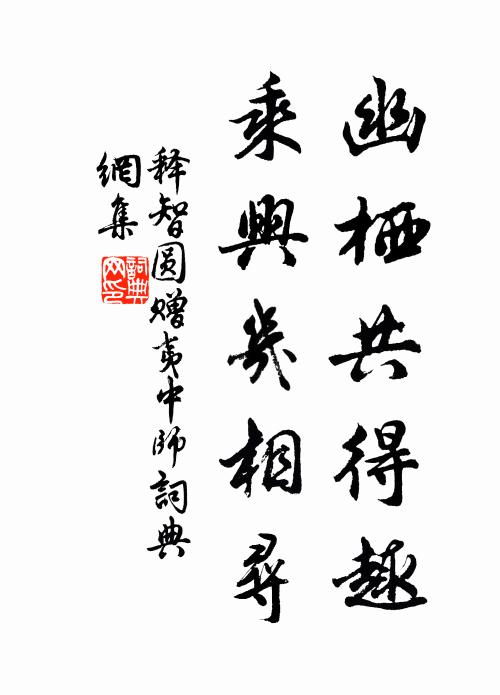 幽栖共得趣
乘興幾相尋
释智圆赠夷中师詞典
網集
詞典網印